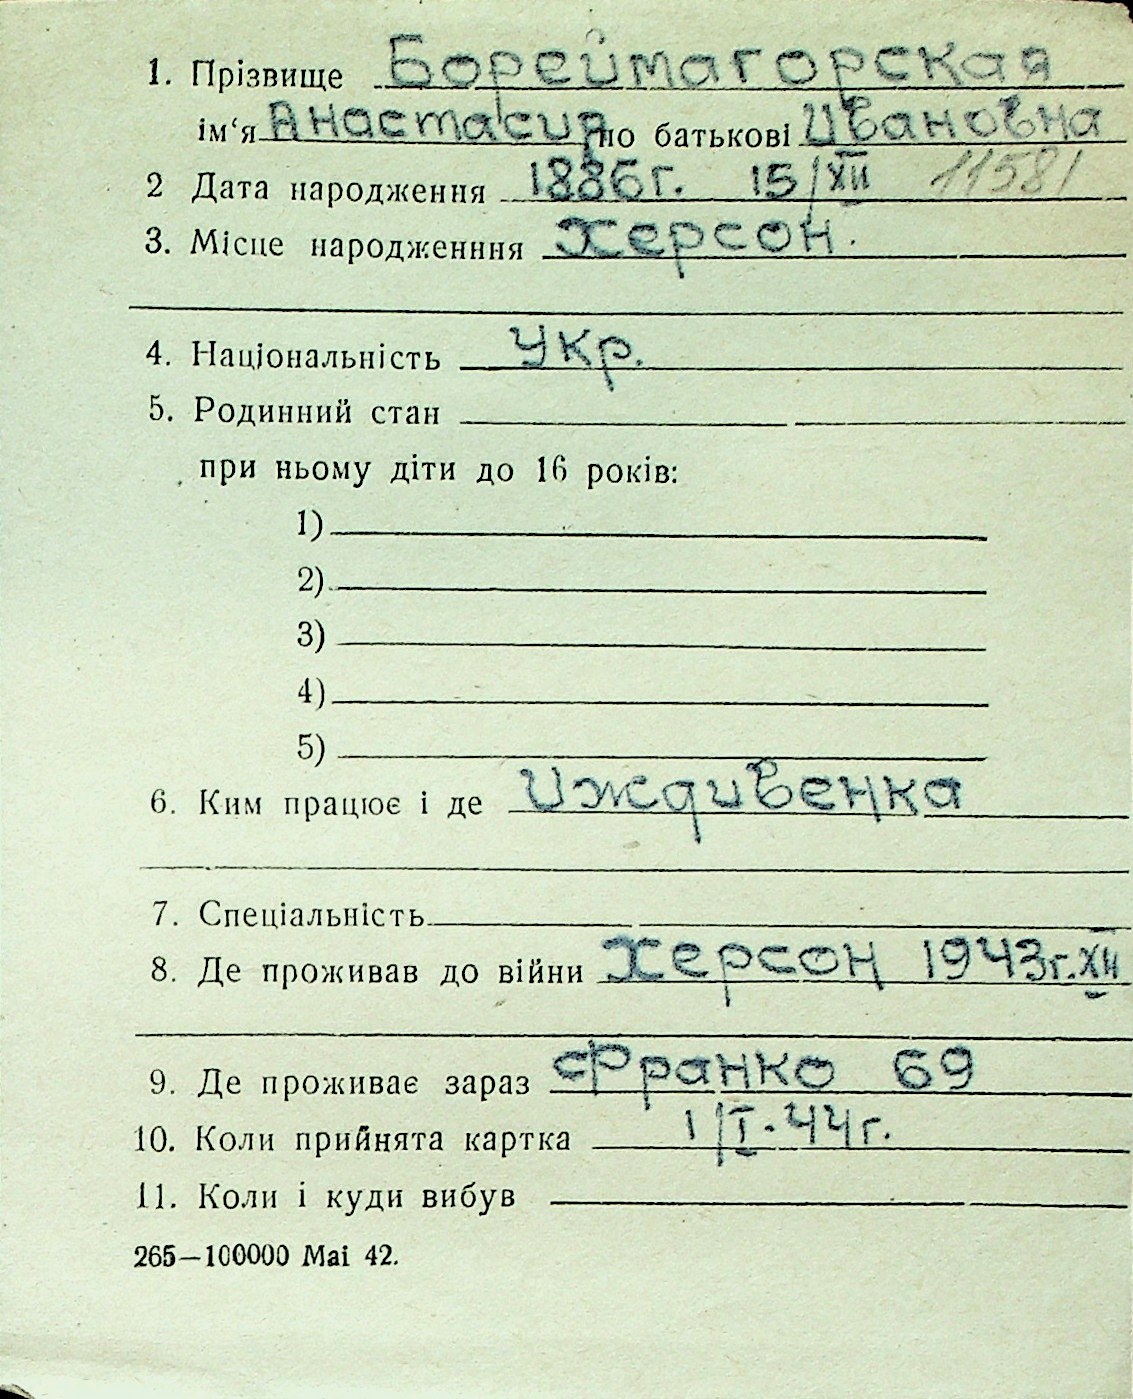 1. Прізвище Бореймагорская
ім‘я Анастасия по батькові Ивановна
2 Дата народження 1886г. 15/XII 11581
3. Місце народженння Херсон.
4. Національність Укр.
5. Родинний стан
при ньому діти до 16 років:
1)
2)
3)
4)
5)
6. Ким працює і де Иждивенка
7. Спеціальність
8. Де проживав до війни Херсон 1943г. XII
9. Де проживає зараз Франко 69
10. Коли прийнята картка 1/I-44г.
11. Коли і куди вибув
265—100000 Mai 42.